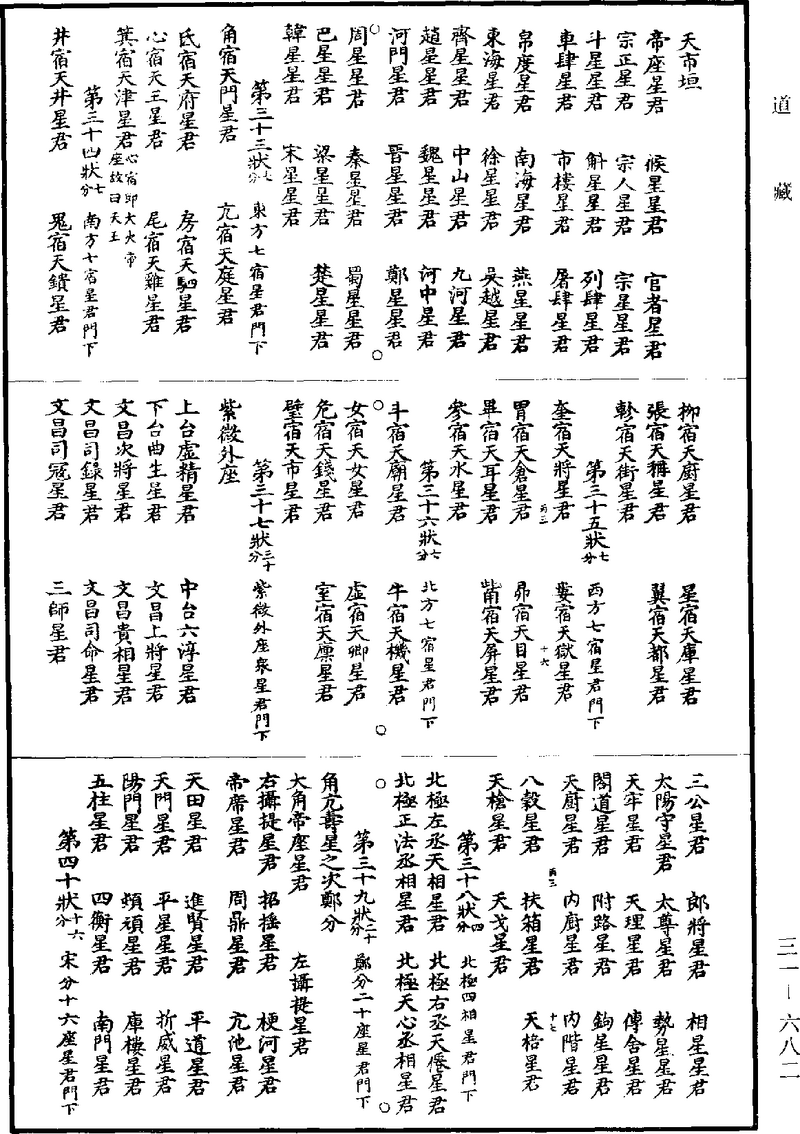 道藏
天市垣
帝座星君　候星星君　官者星君
宗正星君　宗人星君　宗星星君
斗星星君　斛星星君　列肆星君
車肆星君　市樓星君　屠肆星君
帛度星君　南海星君　燕星星君
東海星君　徐星星君　吳越星君
齊星星君　中山星君　九河星君
趙星星君　魏星星君　河中星君
河門星君　晉星星君　鄭星星君
周星星君　秦星星君　蜀星星君
巴星星君　梁星星君　楚星星君
韓星星君　宋星星君
第三十三狀七分　東方七宿星君門下
角宿天門星君　亢宿天庭星君
氐宿天府星君　房宿天駟星君
心宿天王星君　尾宿天雞星君
箕宿天津星君心宿即大火帝座故曰天王
第三十四狀七分　南方七宿星君門下
井宿天井星君　鬼宿天鑕星君
柳宿天廚星君　星宿天庫星君
張宿天稱星君　翼宿天都星君
軫宿天街星君
第三十五狀七分　西方七宿星君門下
奎宿天將星君　婁宿天獄星君
丙二　十六
胃宿天倉星君　昴宿天目星君
畢宿天耳星君　觜宿天屏星君
參宿天水星君
第三十六狀七分　北方七宿星君門下
斗宿天廟星君　牛宿天機星君
女宿天女星君　虛宿天卿星君
危宿天錢星君　室宿天廩星君
壁宿天市星君
第三十七狀三十分　紫微外座衆星君門下
紫微外座
上台虛精星君　中台六淳星君
下台曲生星君　文昌上將星君
文昌次將星君　文昌貴相星君
文昌司錄星君　文昌司命星君
文昌司冠星君　三師星君
三公星君　郎將星君　相星星君
太陽守星君　太尊星君　勢星星君
天牢星君　天理星君　傳舍星君
閣道星君　附路星君　鉤星星君
天廚星君　內廚星君　內階星君
丙三　十七
八穀星君　扶箱星君　天棓星君
天槍星君　天戈星君
第三十八狀四分　北極四相星君門下
北極左丞天相星君　北極右丞天僊星君
北極正法丞相星君　北極天心丞相星君
第三十九狀二十分　鄭分二十座星君門下
角亢壽星之次鄭分
大角帝座星君　左攝提星君
右攝提星君　招搖星君　梗河星君
帝席星君　周鼎星君　亢池星君
天田星君　進賢星君　平道星君
天門星君　平星星君　折威星君
陽門星君　頞頑星君　庫樓星君
五柱星君　四衡星君　南門星君
第四十狀十六分　宋分十六座星君門下
三一—六八二